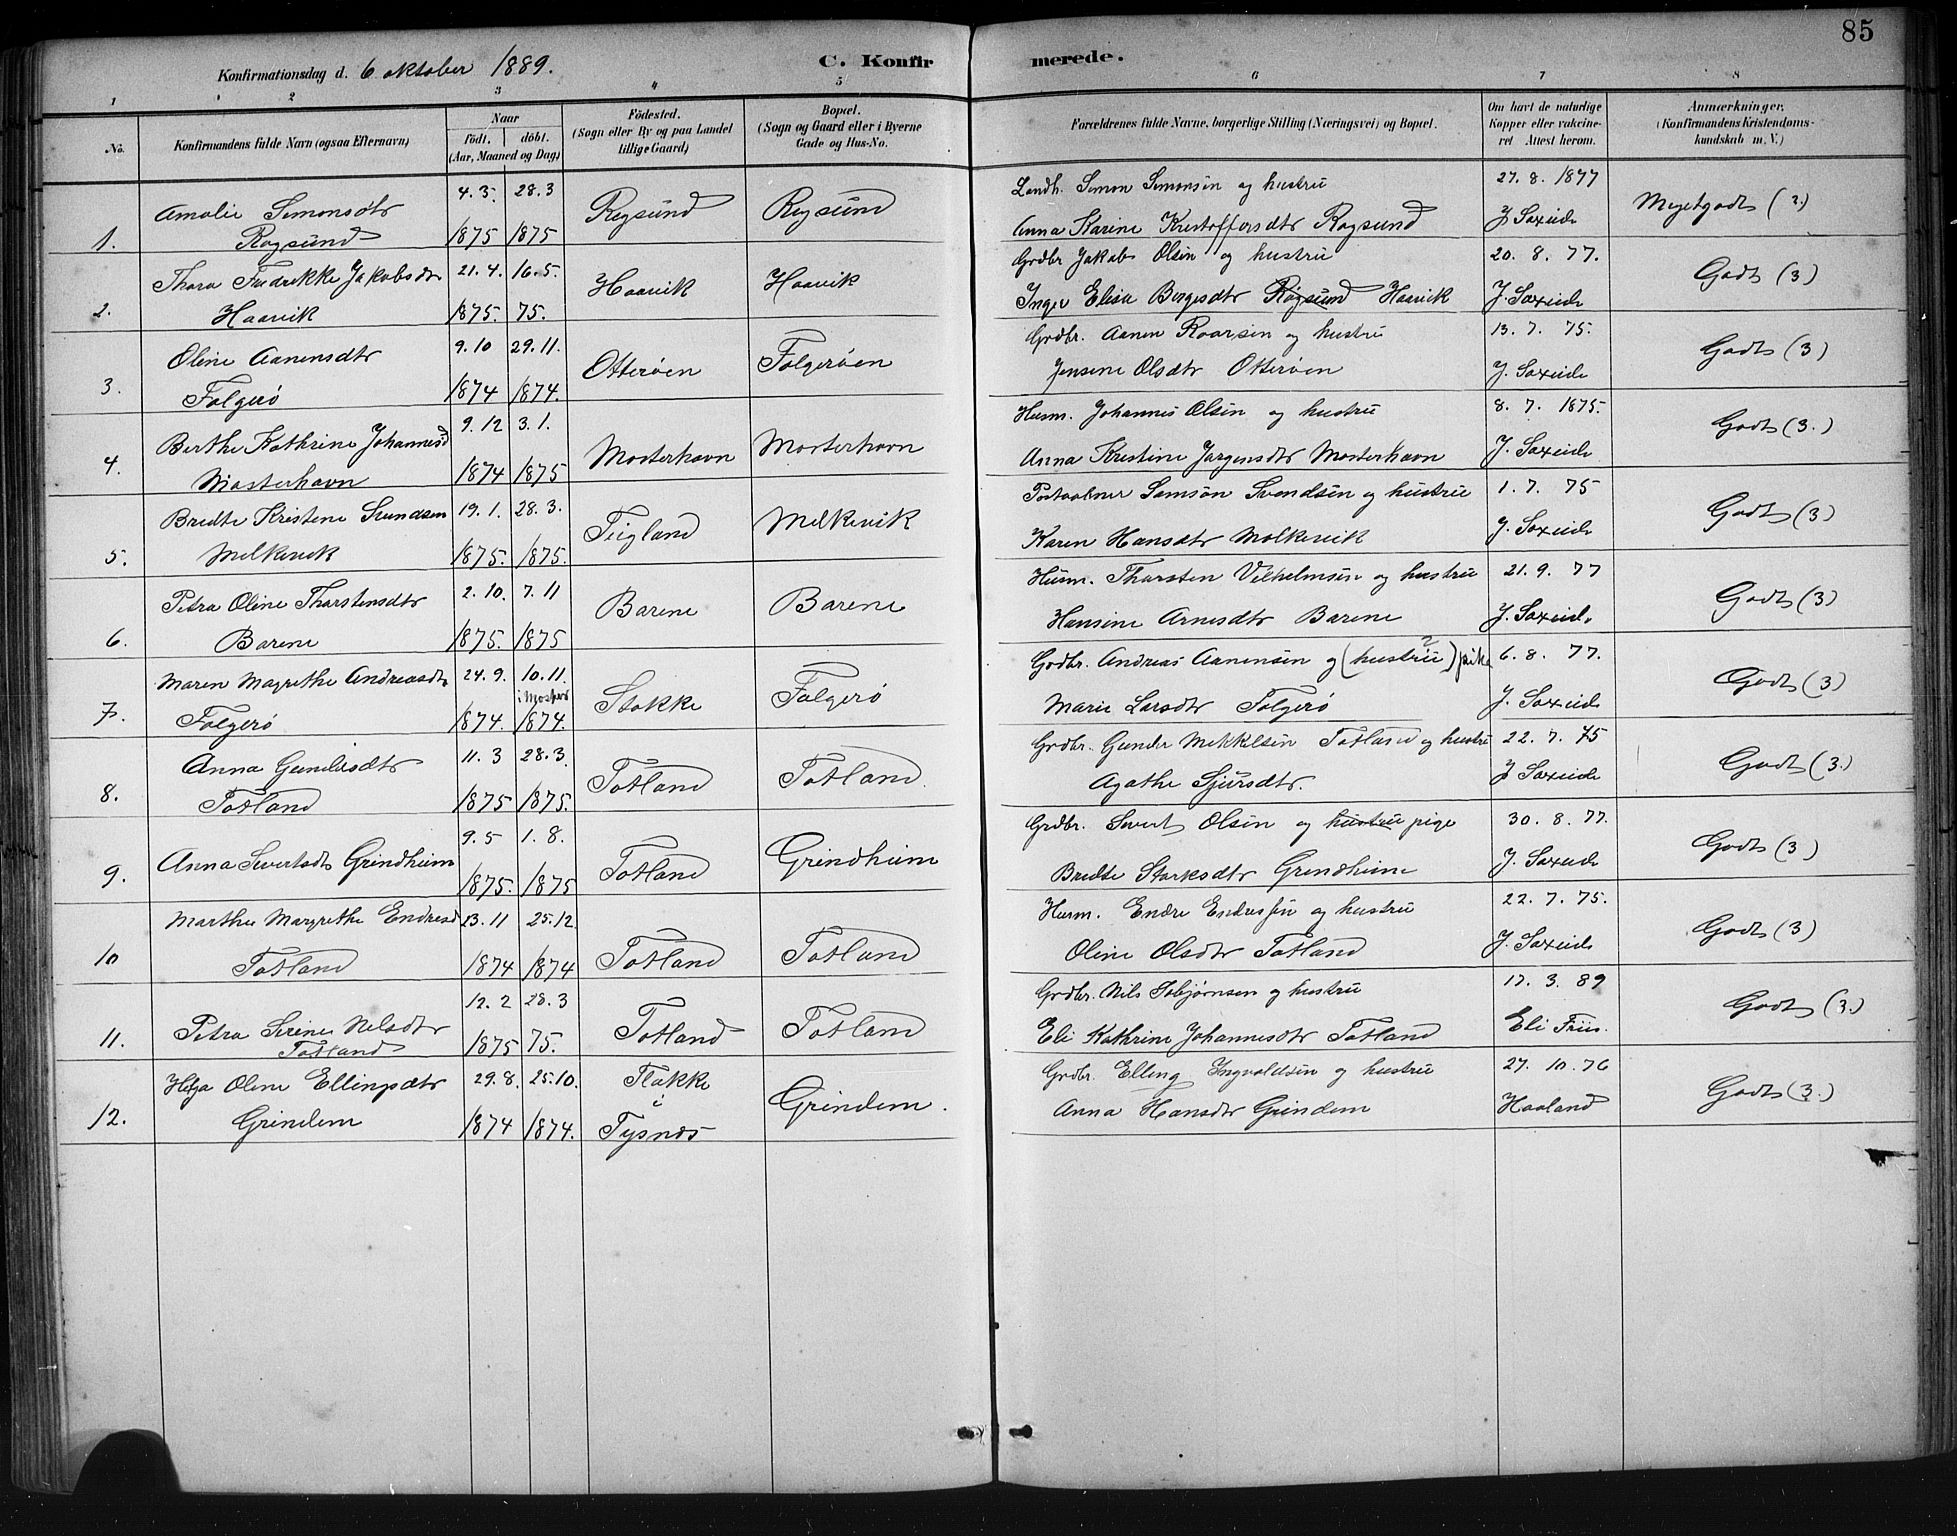 85
Konfirmationsdag d. 6 oktober 1889.
C. Konfirmerede.
1 2 3 4 5 6 7 8
No.
Konfirmandens fulde Navn (ogsaa Efternavn)
Naar
födt. döbt.
(Aar, Maaned og Dag)
Födested.
(Sogn eller By og paa Landet
tillige Gaard)
Bopæl.
(Sogn og Gaard eller i Byerne
Gade og Hus-No.
Forældrenes fulde Navne, borgerlige Stilling (Næringsvei) og Bopæl.
Om havt de naturlige
Kopper eller vakcine-
ret Attest herom.
Anmærkninger.
(Konfirmandens Kristendoms-
kundskab m. V.)
Amalie Simonsdtr 4.3. 28.3 Røgsund Røgsund Landh. Simon Simonsen og hustru 27. 8. 1877 Megetgodt (2.)
1. Røgsund 1875 1875 Anna Karine Kristoffersdtr Røgsund J. Saxeide
Thora Fredrikke Jakobsdtr 21.4. 16.5. Haavik Haavik Grdbr Jakob Olsen og hustru 20. 8. 77. Godt (3)
2. Haavik 1875. 75. Inger Elisa Børgesdtr Røgsund Haavik J. Saxeide
Oline Aanensdtr 9.10 29.11. Otterøen Folgerøen Grdbr. Aanen Roarsen og hustru 13. 7. 75. Godt (3)
3. Folgerø 1874 1874. Jensine Olsdtr Otterøen J. Saxeide
Berthe Kathrine Johannesd 9.12 3.1. Mosterhavn Mosterhavn Husm. Johannes Olsen og hustru 8. 7. 1875. Godt (3.)
4. Mosterhavn 1874 1875 Anna Kristine Jørgensdtr Mosterhavn J. Saxeide
Bredte Kristene Svendsen 19.1. 28.3. Tiigland Melkevik Postaabner Samson Svendsen og hustru 1. 7. 75 Godt (3)
5. Melkevik 1875. 1875. Karen Hansdtr Molkevik J. Saxeide
Petra Oline Thorstensdtr 2.10. 7.11 Barene Barene Husm. Thorsten Vilhelmsen og hustru 21. 9. 77 Godt (3)
6. Barene 1875. 1875 Hansine Arnesdtr Barene J. Saxeide
Maren Magrethe Andreasdtr 24.9. 10.11. i Moster Stokke Folgerø Godbr. Andreas Aanensen og (hustru?) pike 6. 8. 77. Godt (3)
7. Folgerø 1874 1874. Marie Larsdtr Folgerø J. Saxeide
Anna Gundersdtr 11.3 28.3. Totland Totland. Grdbr. Gunder Mikkelsen Totland og hustru 22. 7. 75 Godt (3.)
8. Totland 1875 1875. Agathe Sjursdtr. J. Saxeide
9.5 1.8. Totland Grindheim Grdbr. Sivert Olsen og hustru pige 30. 8. 77. Godt (3)
9. Anna Sivertsdt Grindheim 1875. 1875 Bredte Storksdtr Grindheim J. Saxeide
Marthe Margrethe Endresd 13.11 25.12. Totland Totland Husm. Endre Endresen og hustru 22. 7. 75. Godt (3)
10 Totland 1874 1874 Oline Olsdtr Totland J. Saxeide
12.2 28.3 Totland Totland Grdbr. Nils Tobjørnsen og hustru 17. 3. 89 Godt (3.)
11. Petra Serine Nilsdtr 1875 75. Eli Kathrine Johannesdtr Totland Eli Friis.
Totland
Helga Oline Ellingsdtr 29.8. 25.10. Flakke i Tysnæs Grindem. Grdbr. Elling Ingvaldsen og hustru 27. 10. 76 Godt (3.)
12. Grindem 1874 1874. Anna Hansdtr Grindem Haaland